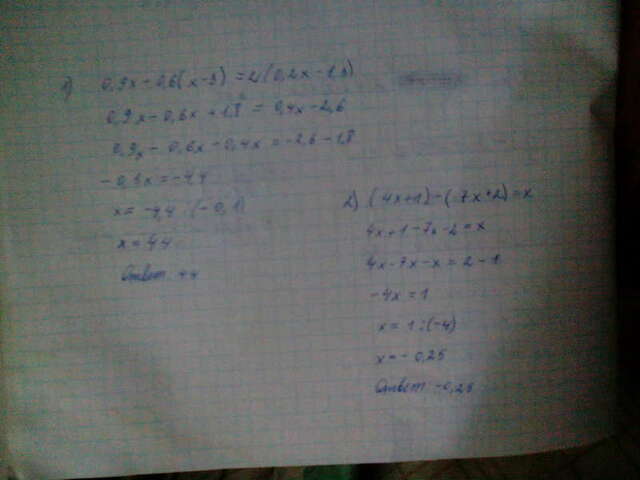 1) 0,9x - 0,6(x - 3) = 2(0,2x - 1,3)
0,9x - 0,6x + 1,8 = 0,4x - 2,6
0,9x - 0,6x - 0,4x = -2,6 - 1,8
x = -4,4 : (-0,1)
x = 44
Ответ: 44
2) (4x+1) - (7x+2) = x
4x + 1 - 7x - 2 = x
4x - 7x - x = 2 - 1
-4x = 1
x = 1 : (-4)
x = - 0,25
Ответ -0,25